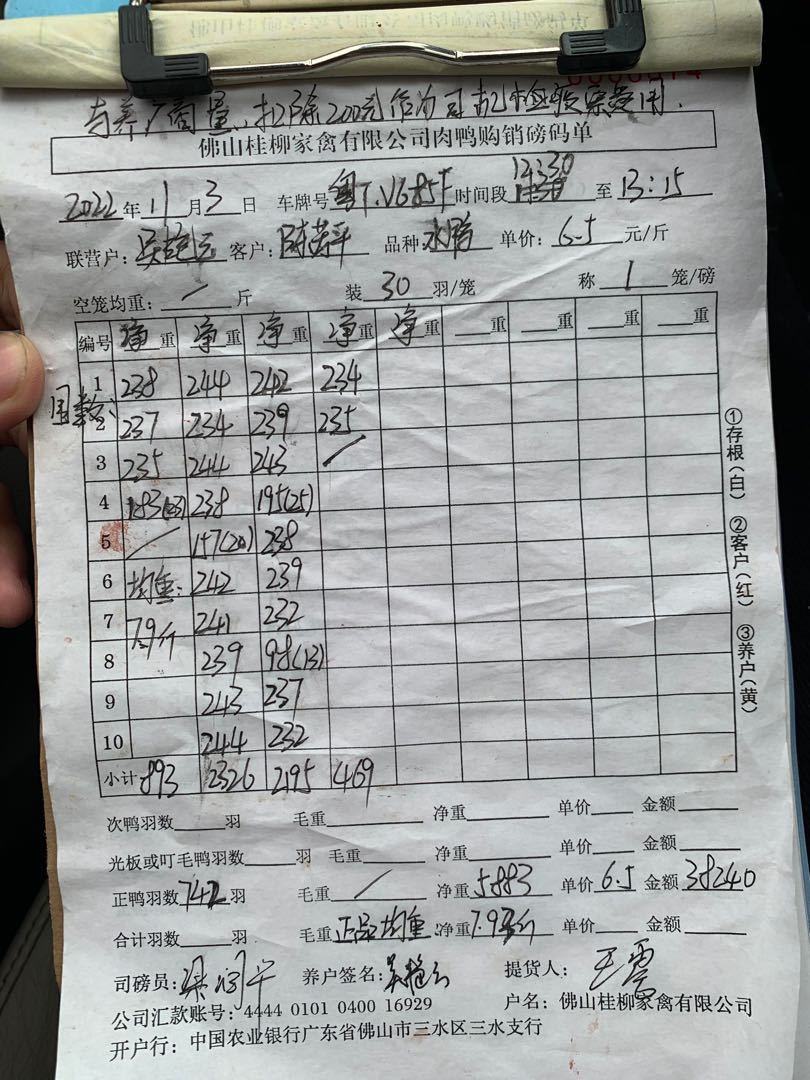 与养户商量、扣除200元作为司机检验票费用.
佛山桂柳家禽有限公司肉鸭购销磅码单
2022年11月3日 车牌号粤T.VG85F 时间段 至13:15
联营户: 客户: 品种水鸭 单价:6.5元/斤
空笼均重:/斤 装30羽/笼 称1笼/磅
编号 净重 净重 净重 净重 净重 重 重 重 重
1 238 244 242 234
2 237 234 239 235
3 235 244 243 /
4 183(23) 238 195(25)
5 / 157(20) 238
6 均重: 242 239
7 7.9斤 241 232
8 239 98(13)
9 243 237
10 244 232
小计 893 2326 2195 469
①存根(白) ②客户(红) ③养户(黄)
次鸭羽数 羽 毛重 净重 单价 金额
光板或叮毛鸭羽数 羽 毛重 净重 单价 金额
正鸭羽数742羽 毛重/ 净重5883 单价6.5 金额38240
合计羽数 羽 毛重正品均重: 净重7.93斤 单价 金额
司磅员: 养户签名: 提货人:王震
公司汇款账号:4444 0101 0400 16929 户名:佛山桂柳家禽有限公司
开户行:中国农业银行广东省佛山市三水区三水支行